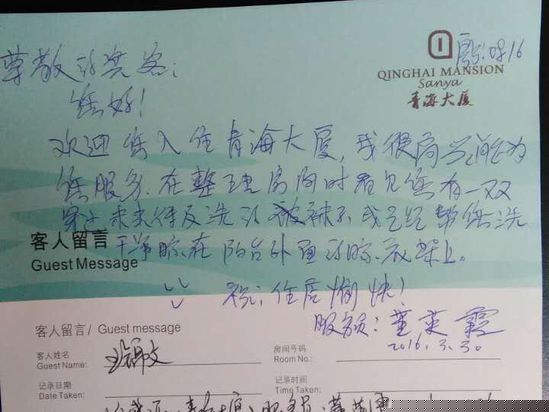 房号:0816
QINGHAI MANSION
Sanya
青海大厦
尊敬的宾客:
您好!
欢迎您入住青海大厦,我很高兴能为
您服务.在整理房间时看见您有一双
未来得及洗的袜子.我已经帮您洗
干净晾在阳台外面的晾衣架上。
客人留言
Guest Message
祝:住居愉快!
服务员:董英霞
2016.3.30
客人留言/ Guest message
客人姓名
Guest Name:
房间号码
Room No.:
记录日期
Date Taken:
记录时间
Time Taken: